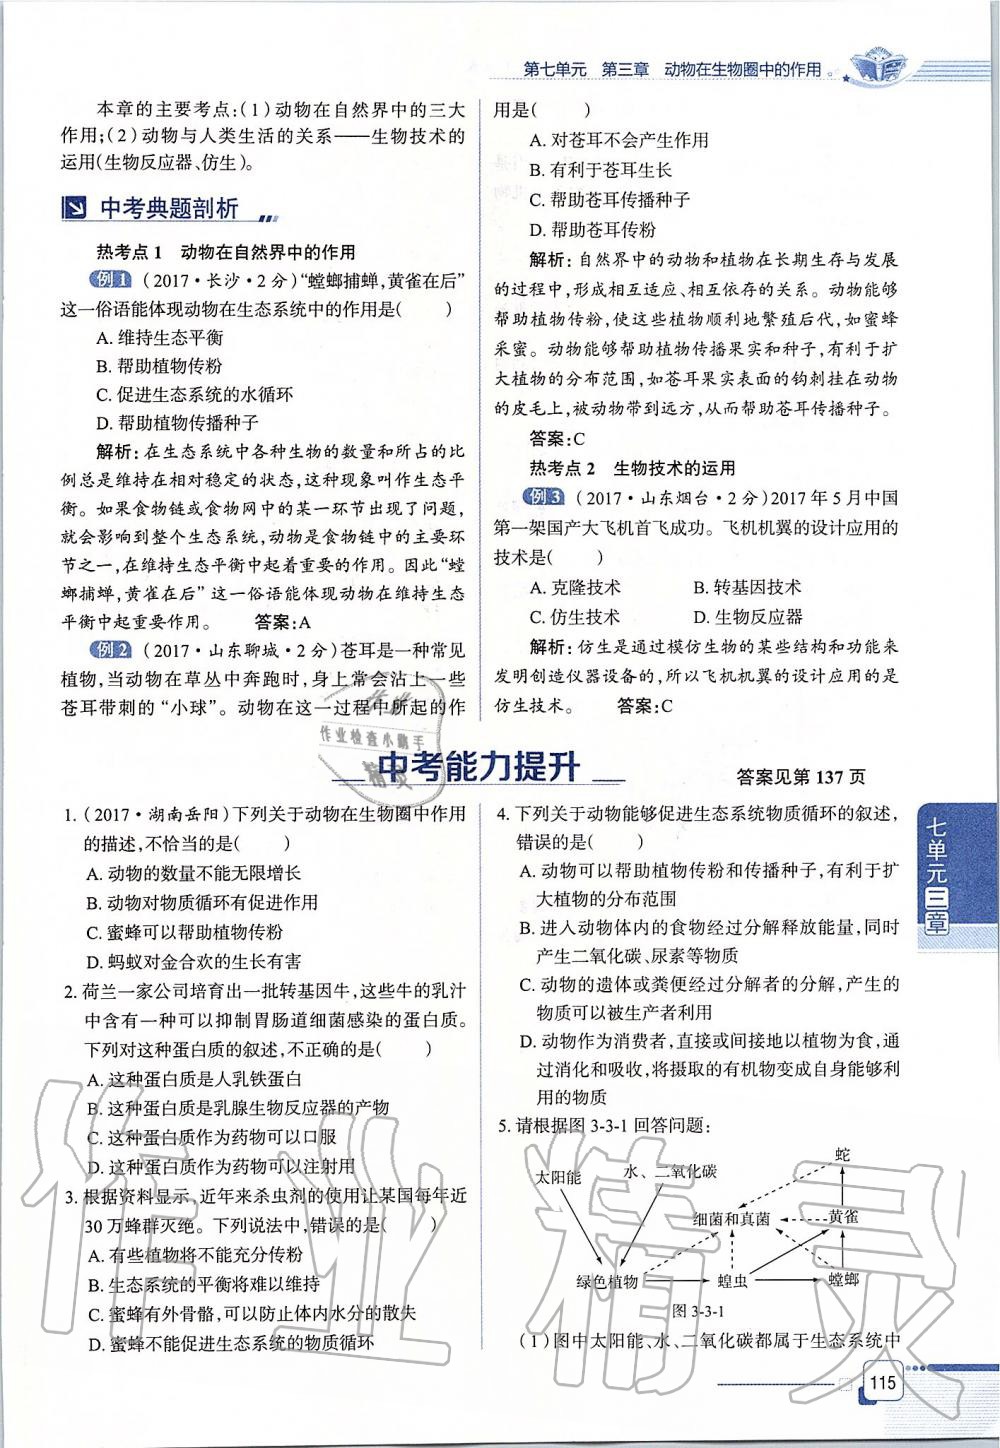 第七单元 第三章 动物在生物圈中的作用
本章的主要考点:(1)动物在自然界中的三大
作用;(2)动物与人类生活的关系——生物技术的
运用(生物反应器、仿生)。
中考典题剖析
热考点1 动物在自然界中的作用
例1 (2017·长沙·2分)“螳螂捕蝉,黄雀在后”
这一俗语能体现动物在生态系统中的作用是( )
A. 维持生态平衡
B. 帮助植物传粉
C. 促进生态系统的水循环
D. 帮助植物传播种子
解析:在生态系统中各种生物的数量和所占的比
例总是维持在相对稳定的状态,这种现象叫作生态平
衡。如果食物链或食物网中的某一环节出现了问题,
就会影响到整个生态系统,动物是食物链中的主要环
节之一,在维持生态平衡中起着重要的作用。因此“螳
螂捕蝉,黄雀在后”这一俗语能体现动物在维持生态
平衡中起重要作用。 答案:A
例2 (2017·山东聊城·2分)苍耳是一种常见
植物,当动物在草丛中奔跑时,身上常会沾上一些
苍耳带刺的“小球”。动物在这一过程中所起的作
用是( )
A. 对苍耳不会产生作用
B. 有利于苍耳生长
C. 帮助苍耳传播种子
D. 帮助苍耳传粉
解析:自然界中的动物和植物在长期生存与发展
的过程中,形成相互适应、相互依存的关系。动物能够
帮助植物传粉,使这些植物顺利地繁殖后代,如蜜蜂
采蜜。动物能够帮助植物传播果实和种子,有利于扩
大植物的分布范围,如苍耳果实表面的钩刺挂在动物
的皮毛上,被动物带到远方,从而帮助苍耳传播种子。
答案:C
热考点2 生物技术的运用
例3 (2017·山东烟台·2分)2017年5月中国
第一架国产大飞机首飞成功。飞机机翼的设计应用的
技术是( )
A. 克隆技术 B. 转基因技术
C. 仿生技术 D. 生物反应器
解析:仿生是通过模仿生物的某些结构和功能来
发明创造仪器设备的,所以飞机机翼的设计应用的是
仿生技术。 答案:C
作业检查小助手
精灵
中考能力提升
答案见第137页
1. (2017·湖南岳阳)下列关于动物在生物圈中作用
的描述,不恰当的是( )
A. 动物的数量不能无限增长
B. 动物对物质循环有促进作用
C. 蜜蜂可以帮助植物传粉
D. 蚂蚁对金合欢的生长有害
2. 荷兰一家公司培育出一批转基因牛,这些牛的乳汁
中含有一种可以抑制胃肠道细菌感染的蛋白质。
下列对这种蛋白质的叙述,不正确的是( )
A. 这种蛋白质是人乳铁蛋白
B. 这种蛋白质是乳腺生物反应器的产物
C. 这种蛋白质作为药物可以口服
D. 这种蛋白质作为药物可以注射用
3. 根据资料显示,近年来杀虫剂的使用让某国每年近
30万蜂群灭绝。下列说法中,错误的是( )
A. 有些植物将不能充分传粉
B. 生态系统的平衡将难以维持
C. 蜜蜂有外骨骼,可以防止体内水分的散失
D. 蜜蜂不能促进生态系统的物质循环
4. 下列关于动物能够促进生态系统物质循环的叙述,
错误的是( )
A. 动物可以帮助植物传粉和传播种子,有利于扩
大植物的分布范围
B. 进入动物体内的食物经过分解释放能量,同时
产生二氧化碳、尿素等物质
C. 动物的遗体或粪便经过分解者的分解,产生的
物质可以被生产者利用
D. 动物作为消费者,直接或间接地以植物为食,通
过消化和吸收,将摄取的有机物变成自身能够利
用的物质
5. 请根据图3-3-1回答问题:
蛇
太阳能 水、二氧化碳
细菌和真菌 黄雀
绿色植物 蝗虫 螳螂
图3-3-1
(1)图中太阳能、水、二氧化碳都属于生态系统中
七单元三章
115
作业精灵